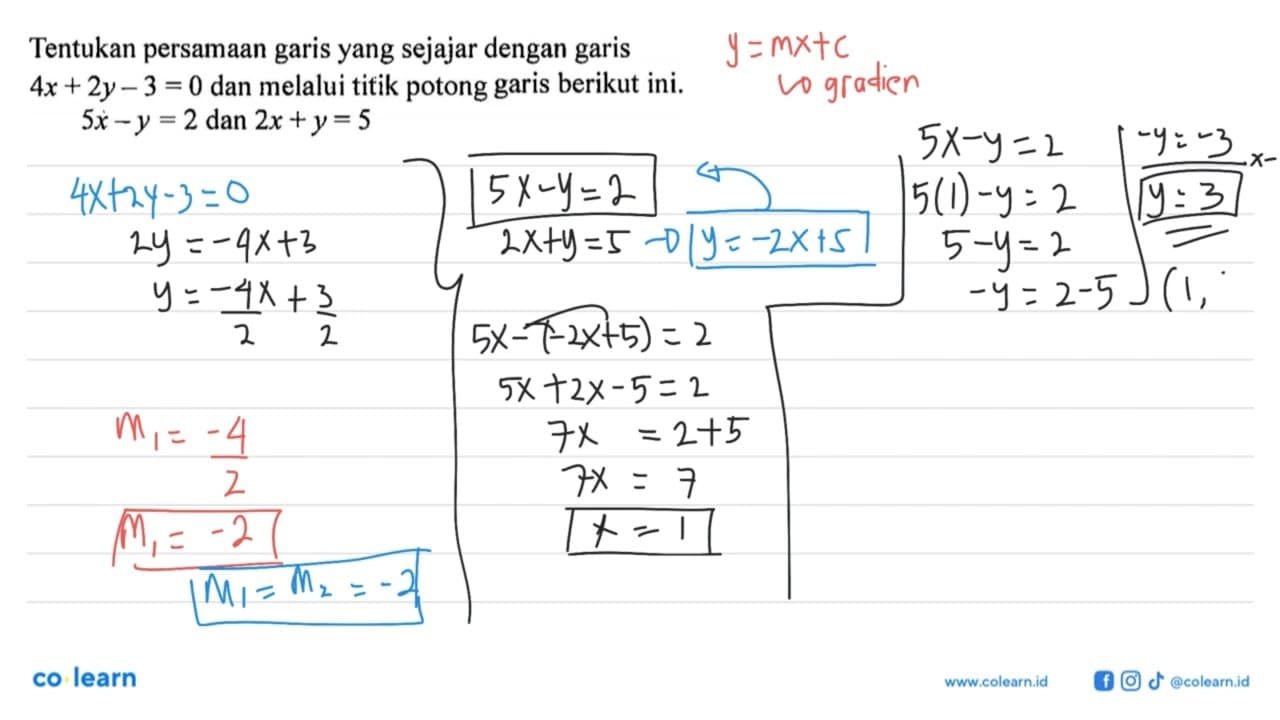 Tentukan persamaan garis yang sejajar dengan garis
4x + 2y – 3 = 0 dan melalui titik potong garis berikut ini.
5x – y = 2 dan 2x + y = 5
y = mx+c
↳ gradien
4x+2y-3=0
2y = -4x+3
y = -4x/2 + 3/2
m₁ = -4/2
m₁ = -2
m₁ = m₂ = -2
5x-y=2
2x+y=5 → y = -2x+5
5x-(-2x+5) = 2
5x+2x-5=2
7x = 2+5
7x = 7
x = 1
5x-y=2
5(1)-y=2
5-y=2
-y = 2-5
-y = -3
x-
y = 3
(1,
co learn
www.colearn.id
@colearn.id